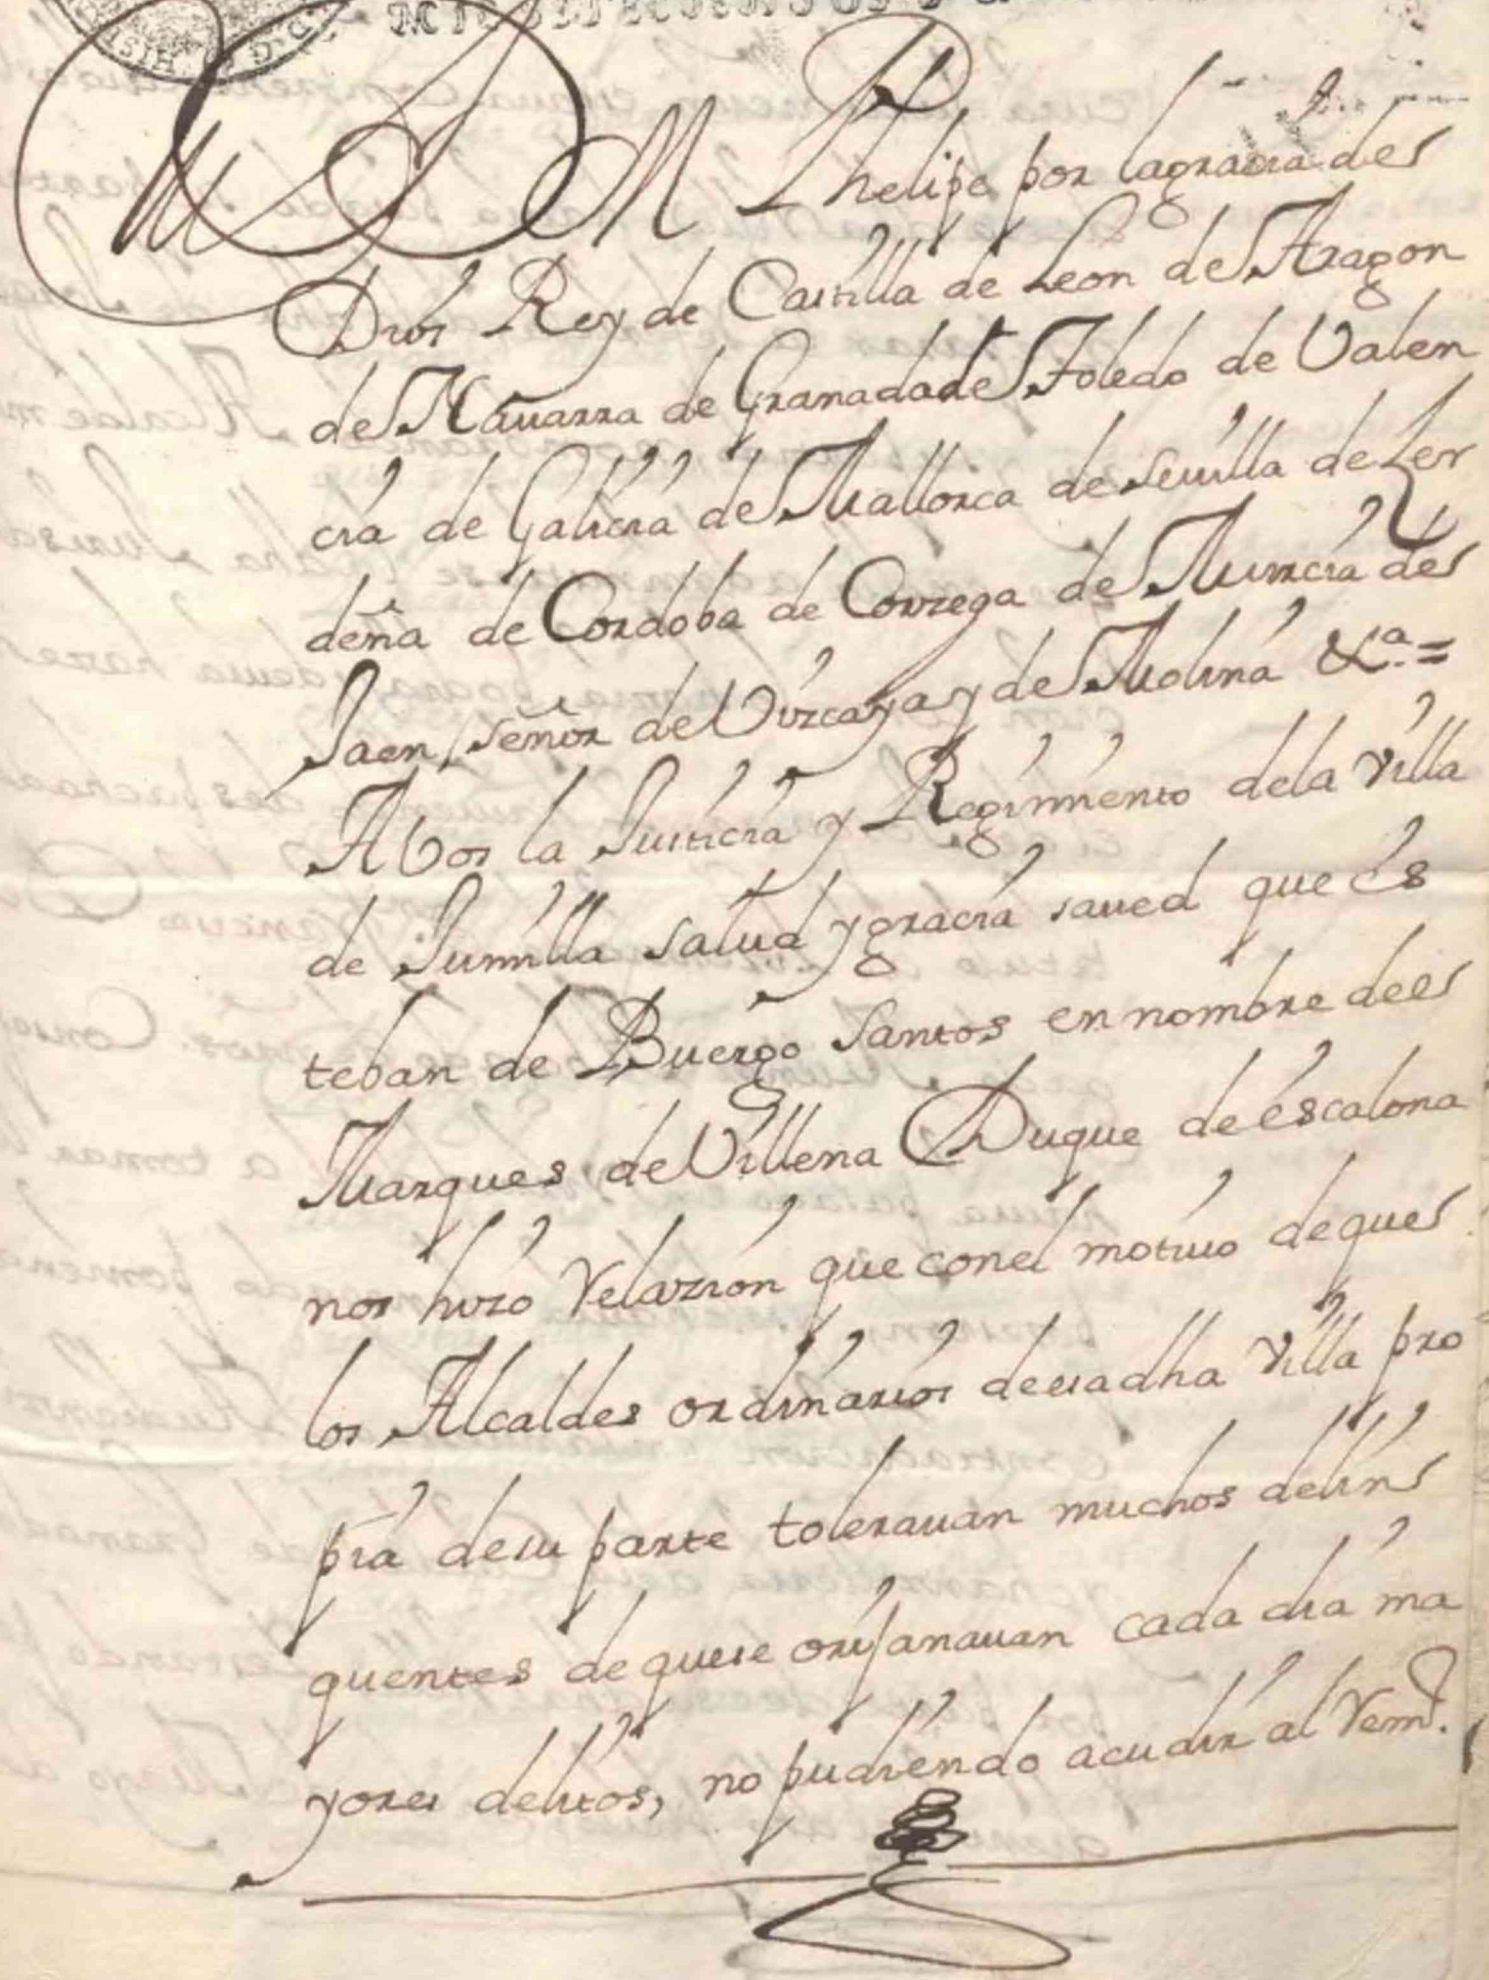 D M Phelipe por la gracia de
Dios Rey de Castilla de Leon de Aragon
de Nauarra de Granada de Toledo de Valen
cia de Galicia de Mallorca de Seuilla de Zer
deña de Cordoba de Corzega de Murcia de
Jaen, señor de Vizcaya y de Molina &ª =
A Vos la Justicia y Regimiento dela Villa
de Jumilla salud y gracia saued que es
teban de Buergo Santos en nombre del
Marques de Villena Duque de escalona
nos hizo Relazion que con el motiuo de que
los Alcaldes ordinarios de esa dha Villa pro
pia de su parte tolerauan muchos delin
quentes de que se orijanauan cada dia ma
yores delitos, no pudiendo acudir al Remº.